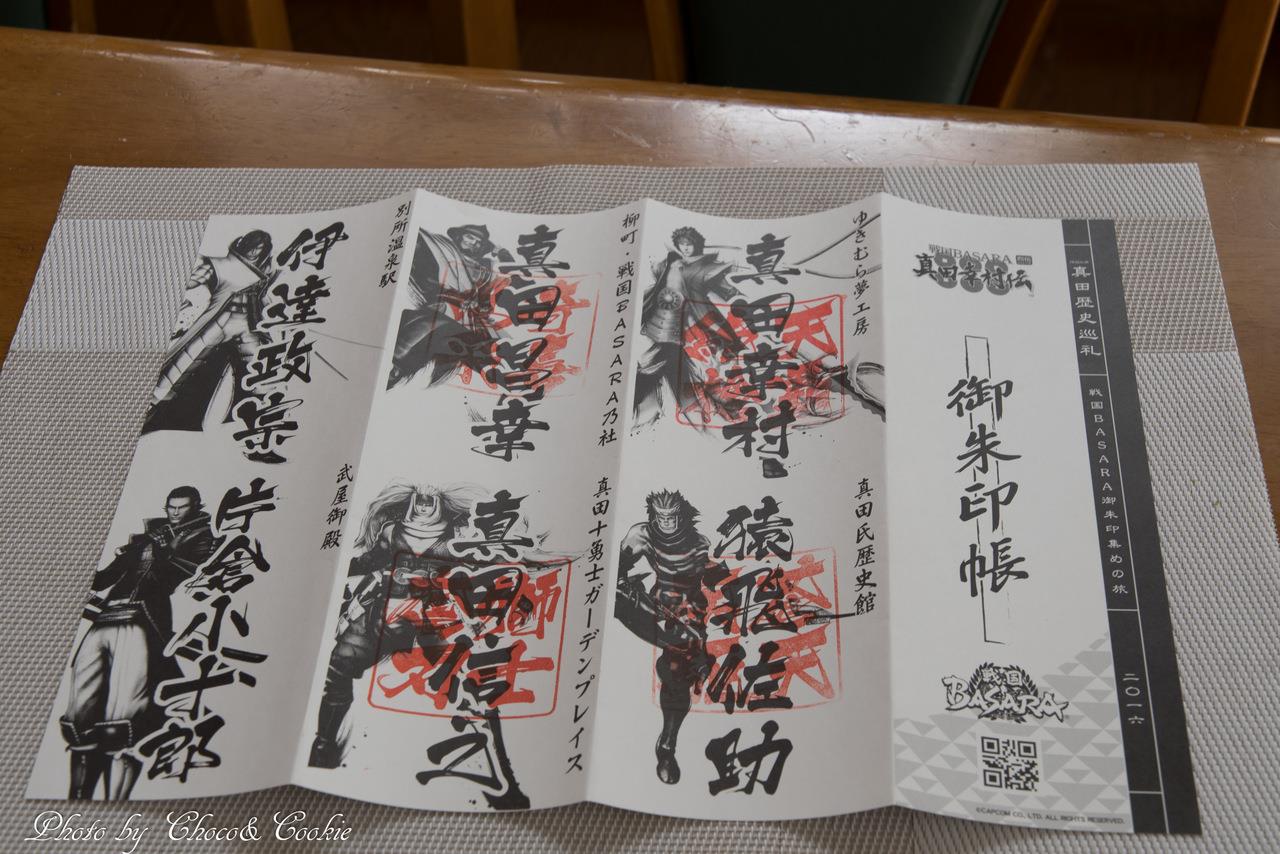 真田歴史巡礼
戦国BASARA御朱印集めの旅
二〇一六
戦国BASARA
真田幸村伝
御朱印帳
戦国
BASARA
©CAPCOM CO., LTD. ALL RIGHTS RESERVED.
ゆきむら夢工房
真田幸村
真田氏歴史館
猿飛佐助
柳町・戦国BASARA乃社
真田昌幸
真田十勇士ガーデンプレイス
真田信之
別所温泉駅
伊達政宗
武屋御殿
片倉小十郎
Photo by Choco& Cookie